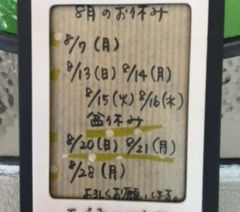 8月のお休み
8/7(月)
8/13(日) 8/14(月)
8/15(火) 8/16(水)
盆休み
8/20(日) 8/21(月)
8/28(月)
よろしくお願いします。